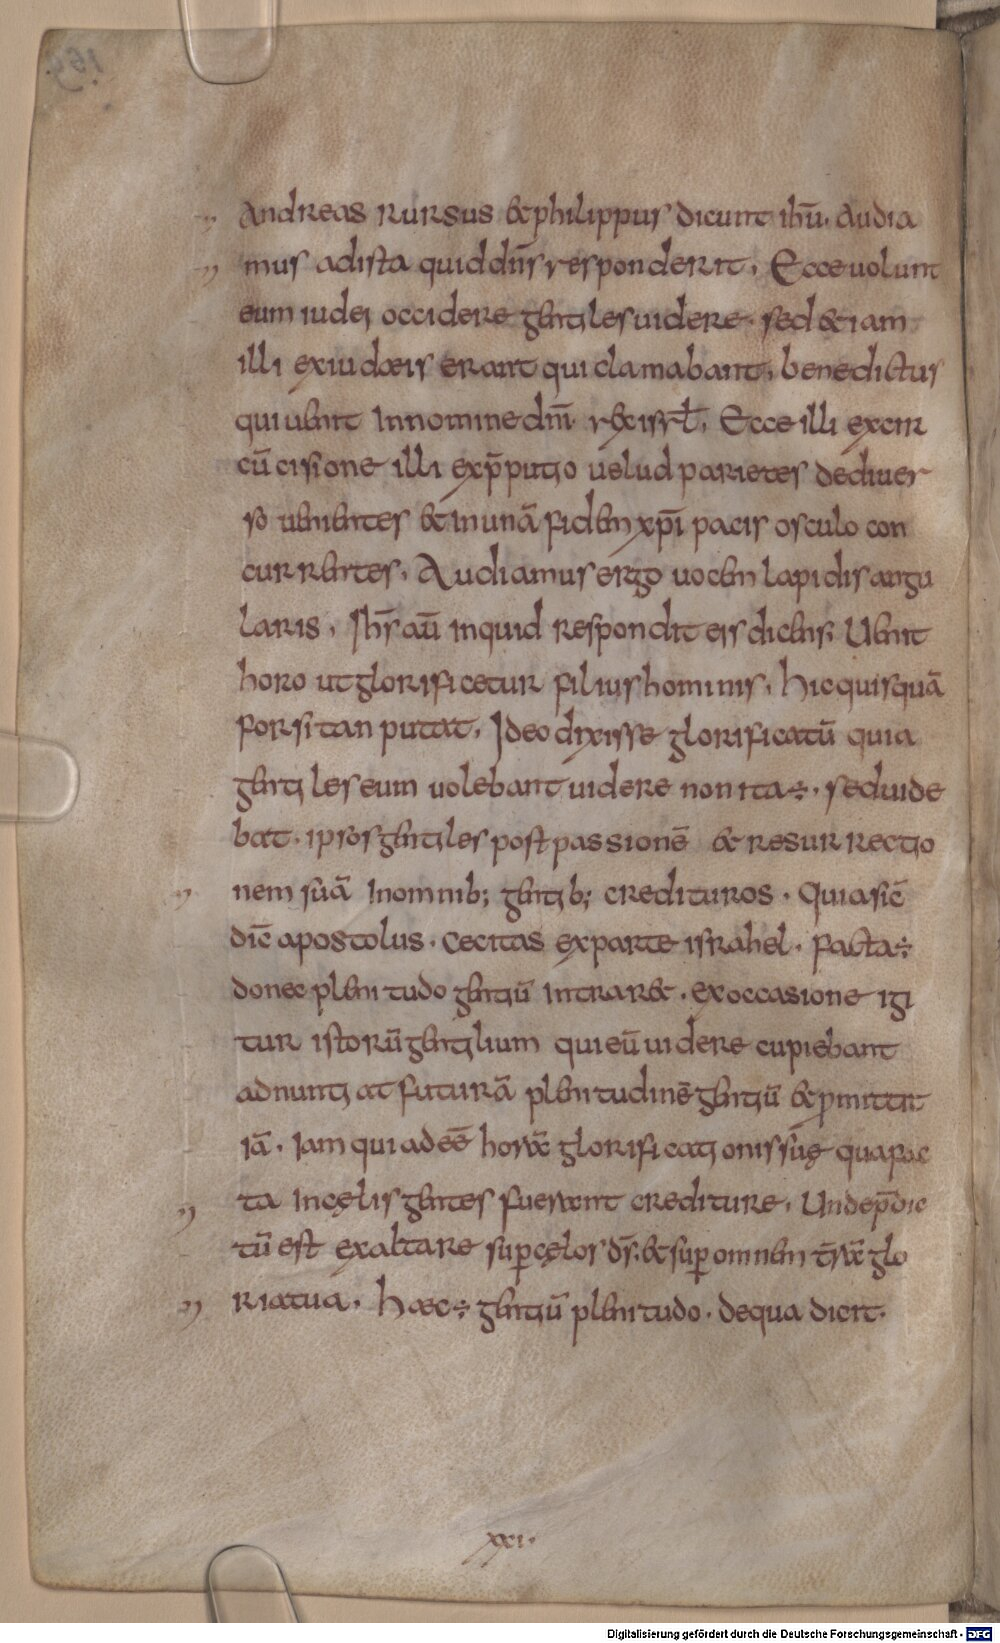 Andreas rursus & philippus dicunt ihū. Audia
mus ad ista quid dn̄s responderit. Ecce uolunt
eum iudei occidere gentiles uidere. sed & iam
illi ex iudæis erant qui clamabant. benedictus
qui uenit In nomine dn̄i r&x isrl̄. Ecce illi ex cir
cū cisione illi ex p̄putio uelud parietes de diuer
so uenientes & in unā fidem xp̄i pacis osculo con
currentes. Audiamus ergo uocem lapidis angu
laris. Ih̄s aū inquid respondit eis dicens. Uenit
horo ut glorificetur filius hominis. hic quisquā
forsitan putat. Ideo dixisse glorificatū quia
gentiles eum uolebant uidere non ita ÷. sed uide
bat. ipsos gentiles post passionē & resurrectio
nem suā In omnib; gentib; credituros. Quia sic̄
dic̄ apostolus. Cecitas ex parte israhel. facta ÷
donec plenitudo gentiū intrar&. ex occasione igi
tur istorū gentilium qui eū uidere cupiebant
adnuntiat futurā plenitudinē gentiū & p̄mittit
iā. Iam qui adeē horā glorificationis suę qua fac
ta In cęlis gentes fuerant crediture. Unde p̄dic
tū est exaltare sup̄ cęlos ds̄. & sup̄ omnem t̄rā glo
ria tua. haec ÷ gentiū plenitudo. de qua dicit.
xxi.
Digitalisierung gefördert durch die Deutsche Forschungsgemeinschaft - DFG